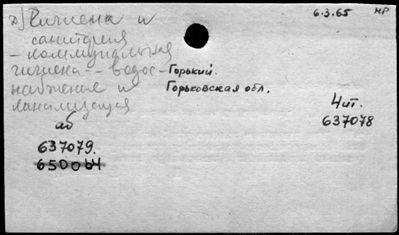 д) Гигиена и 6.3.65 НР
санитария
- коммунальная
гигиена - - водос- Горький.
набжение и Горьковская обл.
канализация
4 чт.
аб 637078
637079.
650064